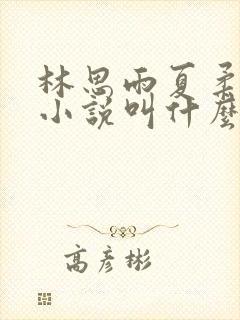 林思雨夏柔
小說叫什麼
高彥彬